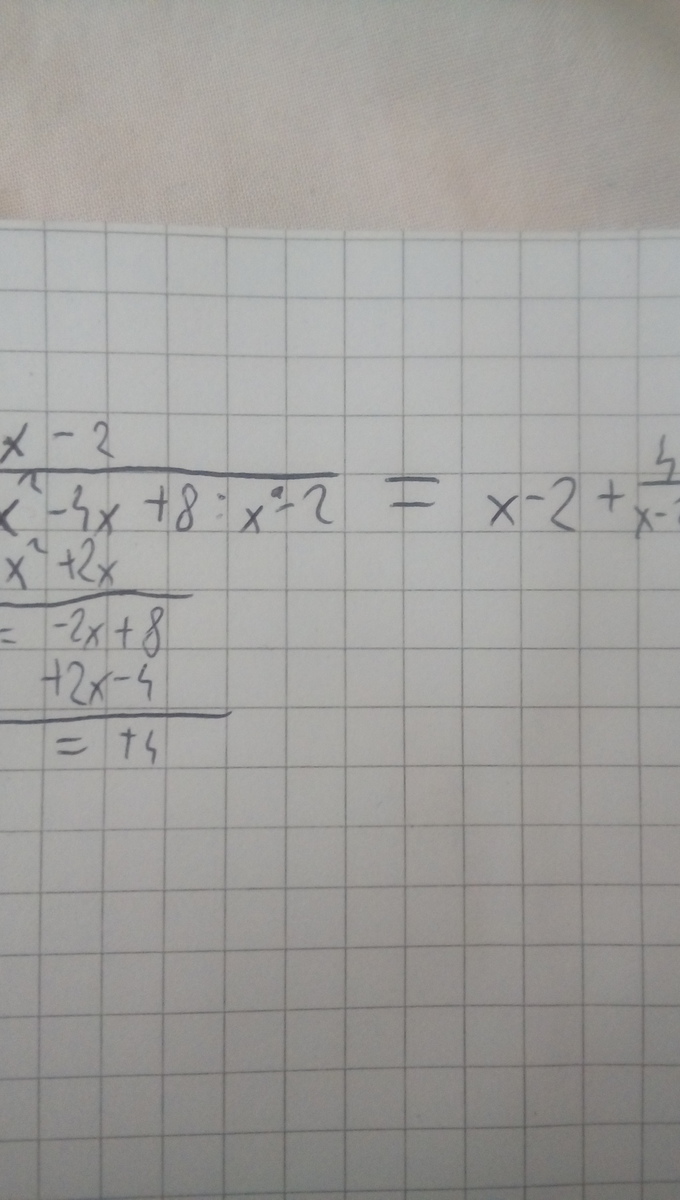 x - 2
x² - 4x + 8 : x - 2 = x - 2 + 4/x-2
x² + 2x
= -2x + 8
+2x - 4
= +4